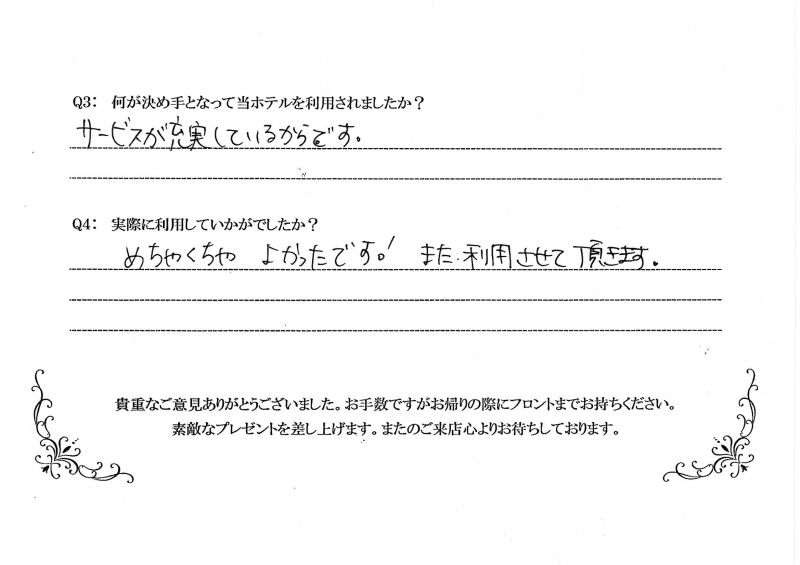 Q3: 何が決め手となって当ホテルを利用されましたか?
サービスが充実しているからです。
Q4: 実際に利用していかがでしたか?
めちゃくちゃ よかったです!また利用させて頂きます。
貴重なご意見ありがとうございました。お手数ですがお帰りの際にフロントまでお持ちください。
素敵なプレゼントを差し上げます。またのご来店心よりお待ちしております。